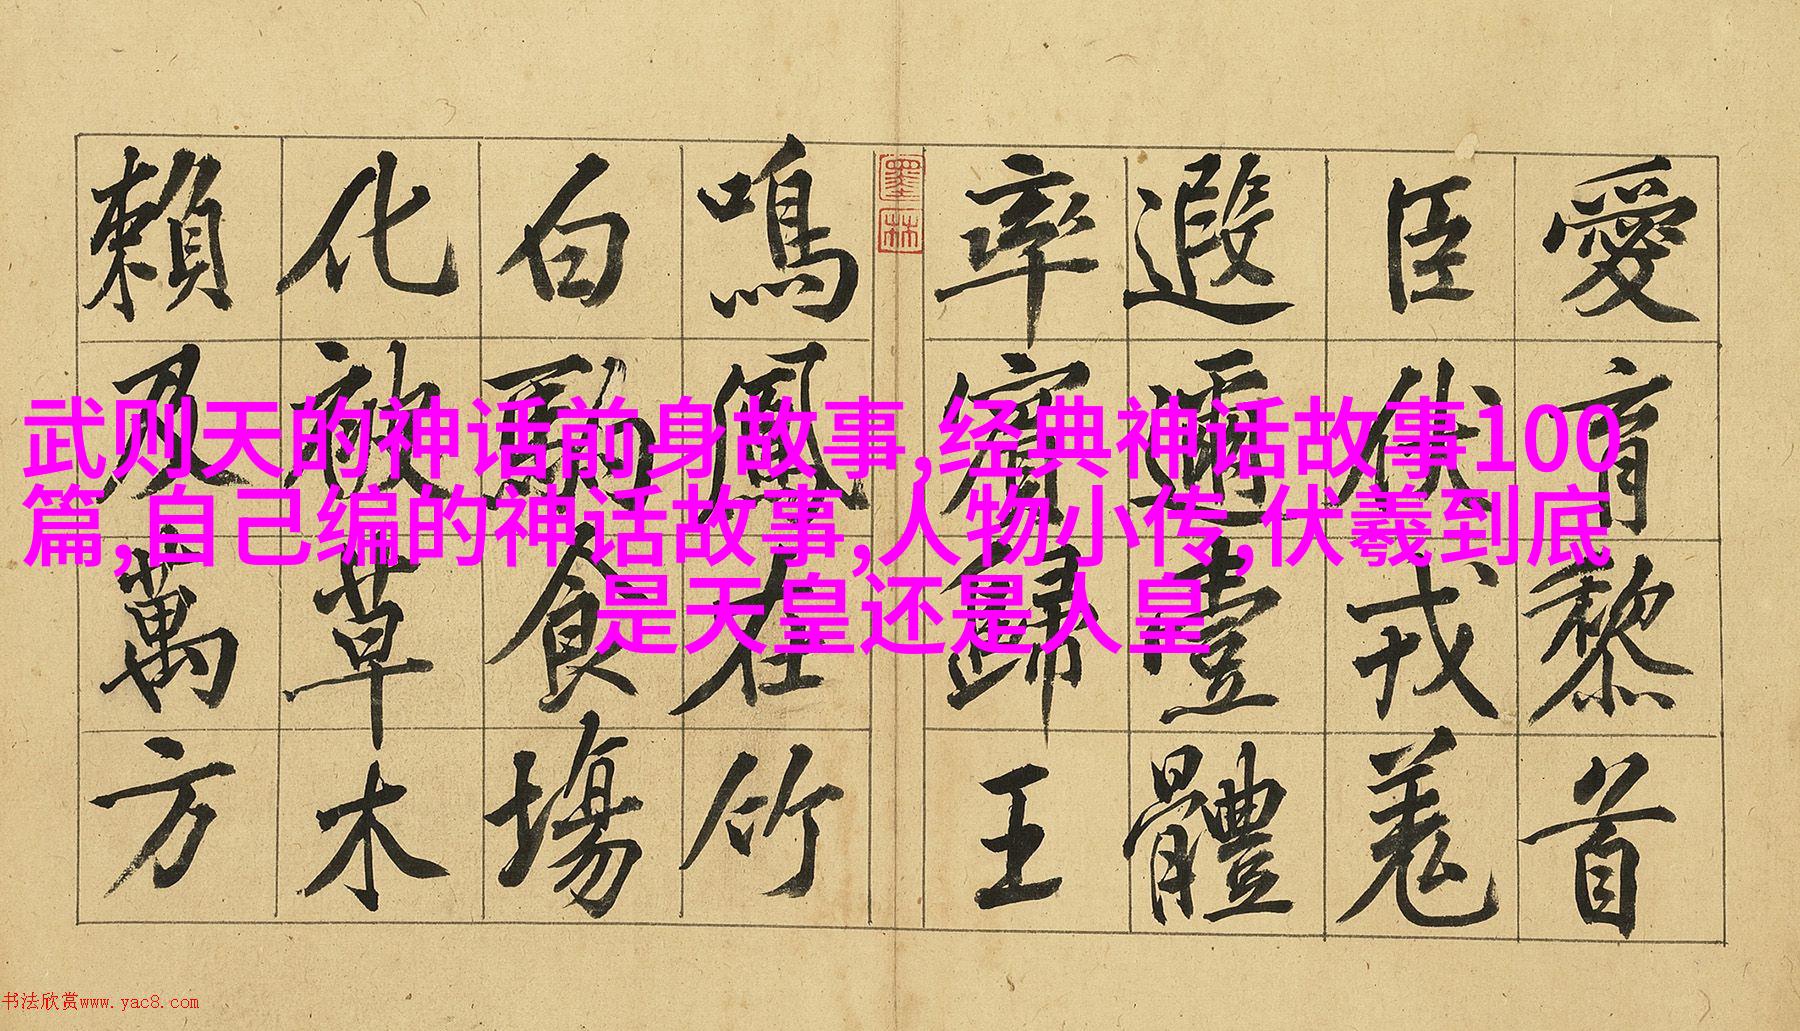 武则天的神话前身故事,经典神话故事100
篇,自己编的神话故事,人物小传,伏羲到底
是天皇还是人皇
愛育黎首
臣伏戎羗
遐邇壹體
率賓歸王
墨林
鳴鳳在竹
白駒食場
化被草木
賴及萬方
书法欣赏www.yac8.com